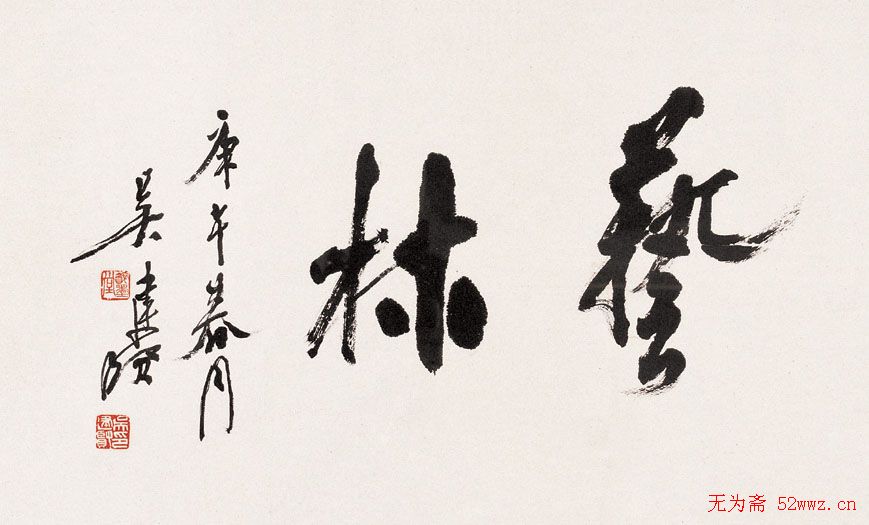 藝林
庚午春月
吴建贤
无为斋 52wwz.cn